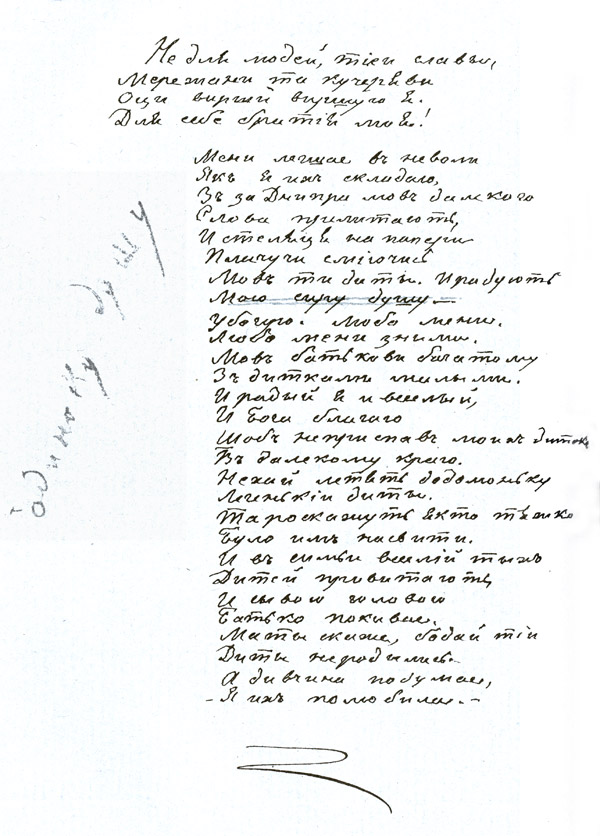 Не для людей, тіеи славы,
Мережани та кучеряви
Оци вирши виршую я.
Для себе братія моя!
Мени легшае въ неволи
Якъ я ихъ складаю,
Зъ за Днипра мовъ далекого
Слова прилитають,
И стеляця на папери
Плачучи сміючись
Мовъ ти диты. И радують
Мою сиру душу
Убогую. Любо мени.
Любо мени зными.
Мовъ батькови багатому
Зъ дитками малыми.
И радый я и веселый,
И Бога благаю
Щобъ неприспавъ моихъ диток
Въ далекому краю.
Нехай летять додомоньку
Легенькіи диты.
Та роскажуть якто тяжко
Було имъ насвити.
И въ симьи веселій тыхо
Дитей привитають,
И сывою головою
Батько покивае.
Маты скаже, бодай тіи
Диты неродились.
А дивчина подумае,
– Я ихъ полюбила. –
Одиноку душу